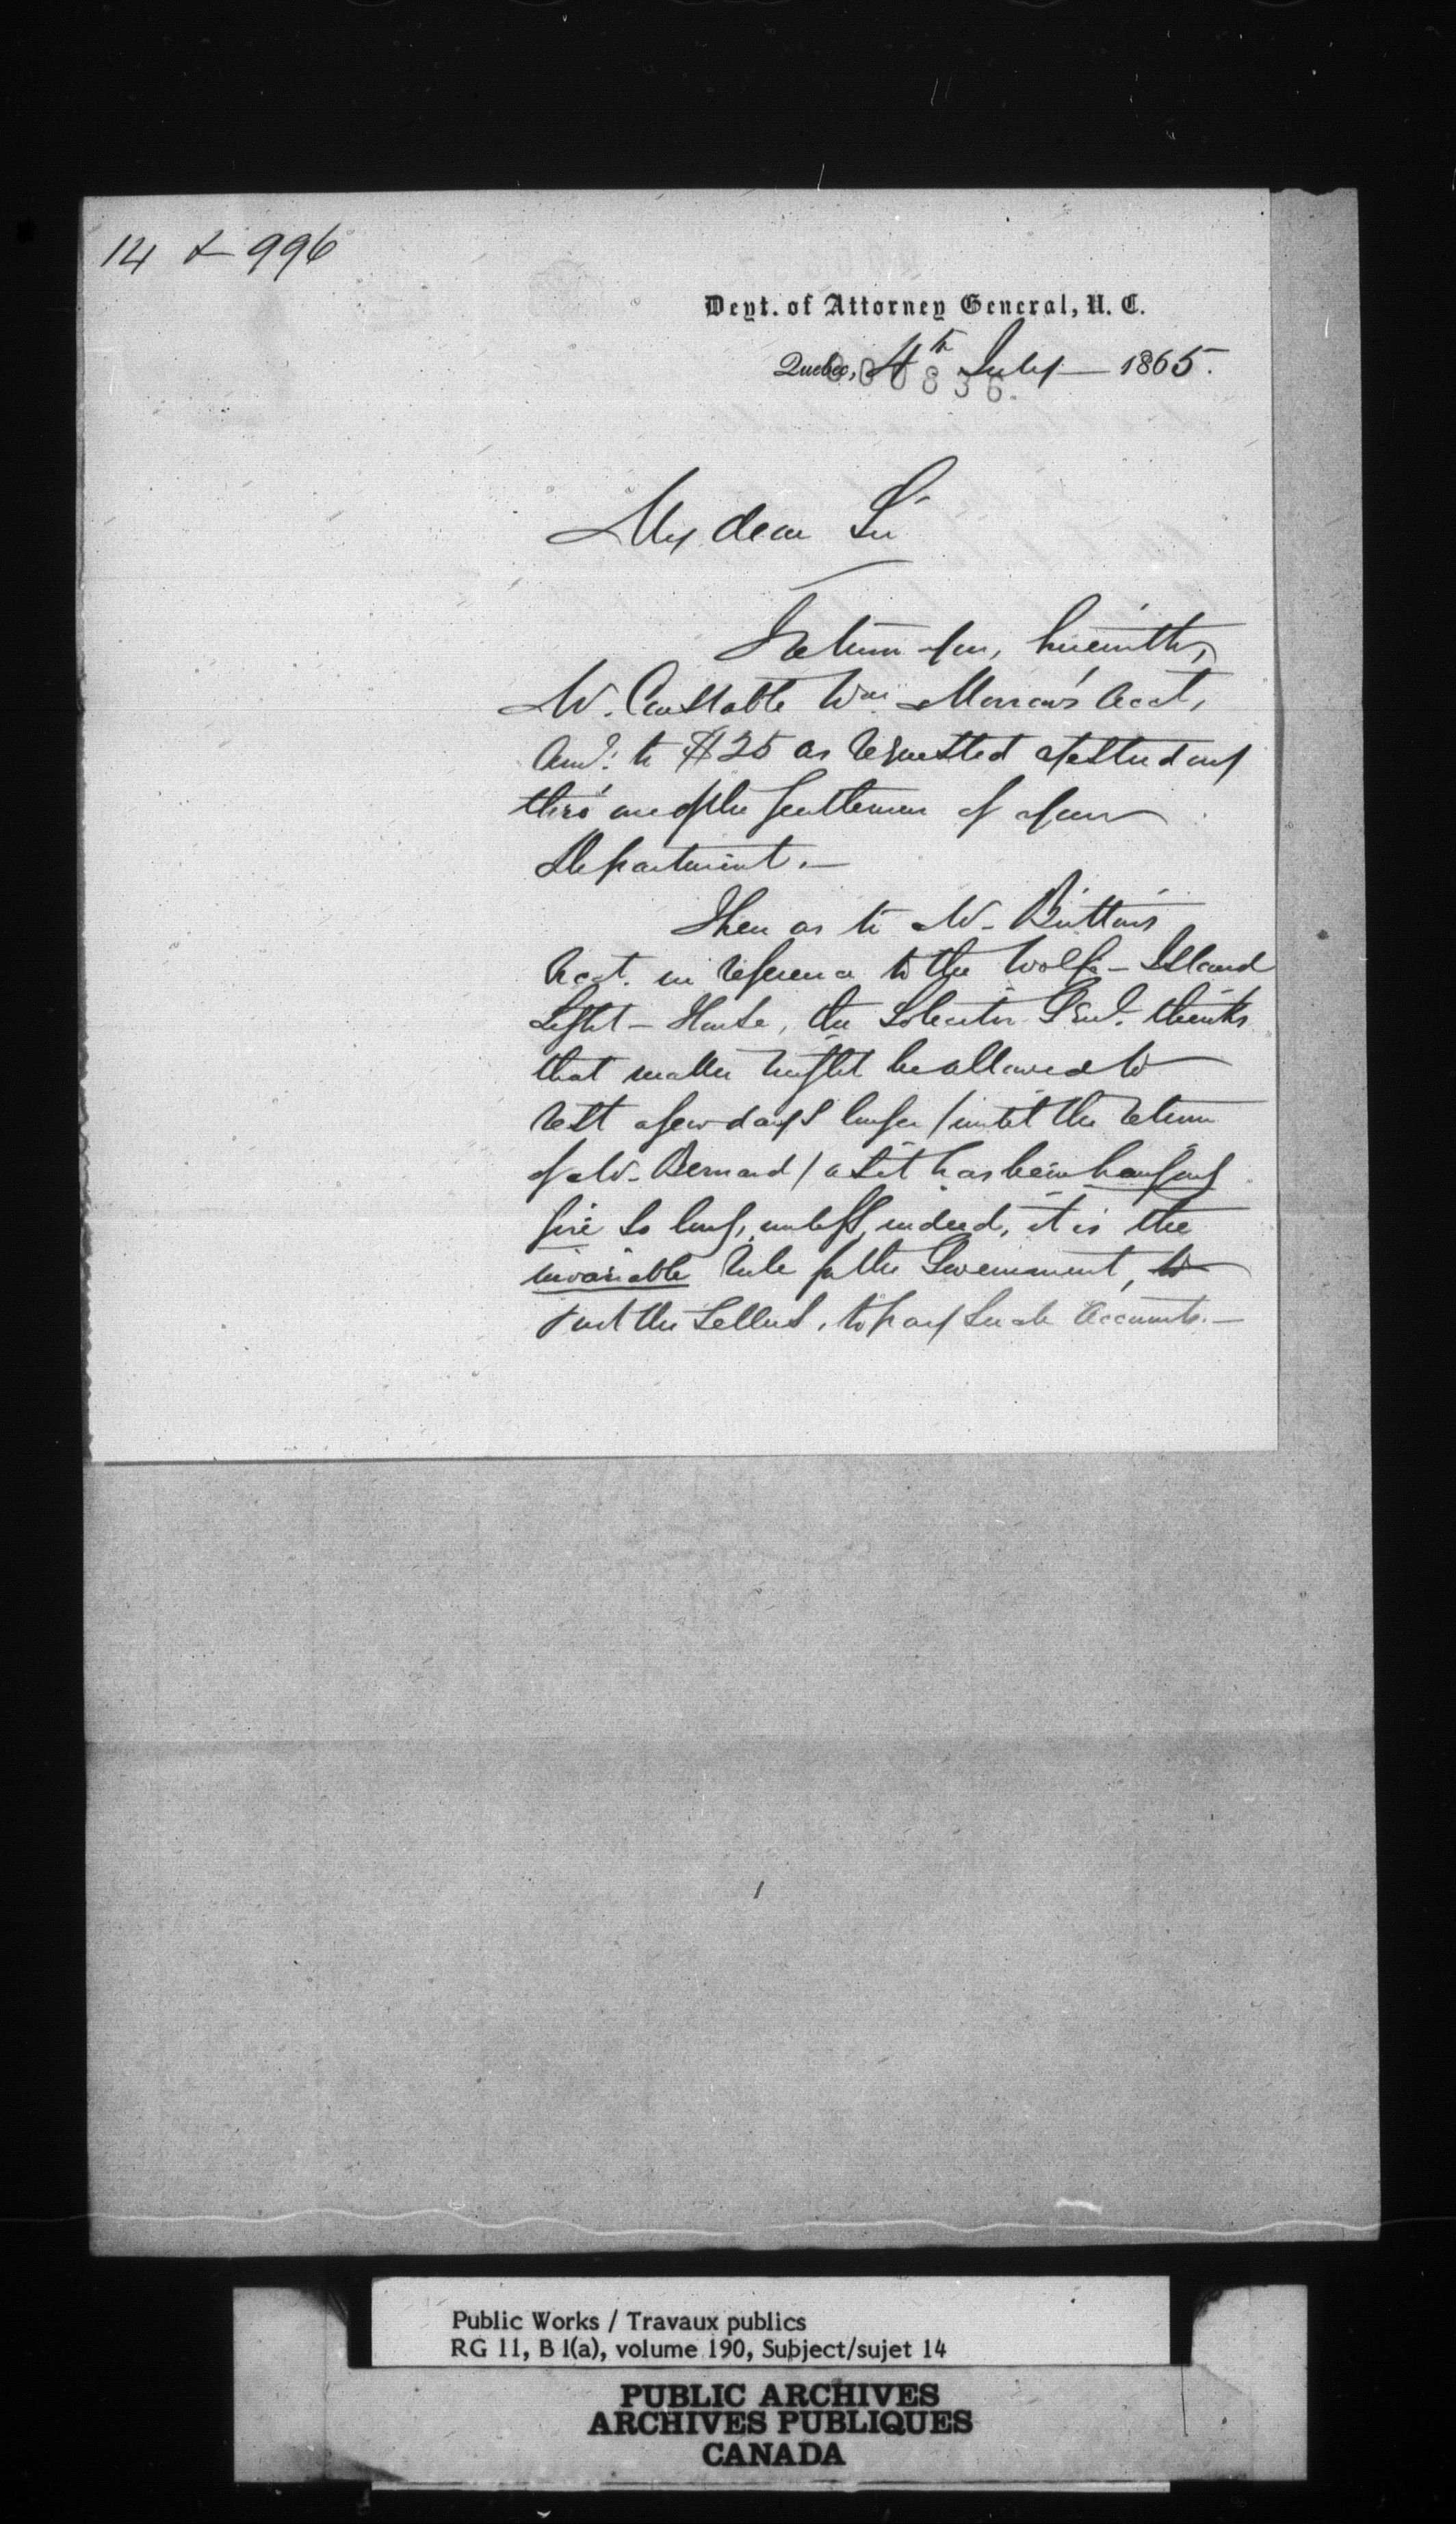 14 & 996
Dept. of Attorney General, U. C.
Quebec, 4th July — 1865.
00836.
My dear Sir
I return you, herewith,
Mr. Constable Wm Morrow's Acct,
Amt. to $25 as requested yesterday
thro' one of the gentlemen of your
Department. —
Then as to Mr. Britton's
Acct. in reference to the Wolfe-Island
Light-House, the Solicitor Genl. thinks
that matter might be allowed to
rest a few days longer / until the return
of Mr. Bernard / as it has been hanging
fire so long, unless, indeed, it is the
invariable rule of the Government, to
the , to pay such Accounts. —
Public Works / Travaux publics
RG 11, B 1(a), volume 190, Subject/sujet 14
PUBLIC ARCHIVES
ARCHIVES PUBLIQUES
CANADA